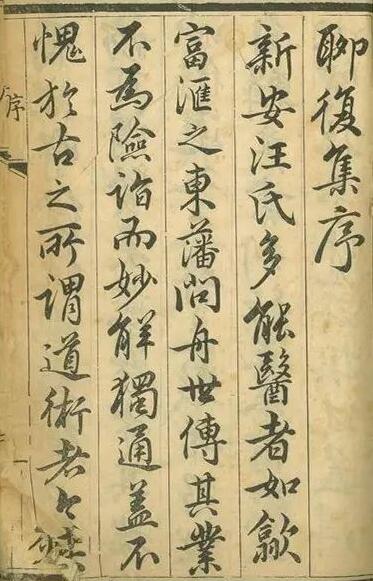 聊復集序
新安汪氏多能醫者如歙
富滙之東藩問舟世傳其業
不為險詣而妙解獨通蓋不
愧於古之所謂道術者
序